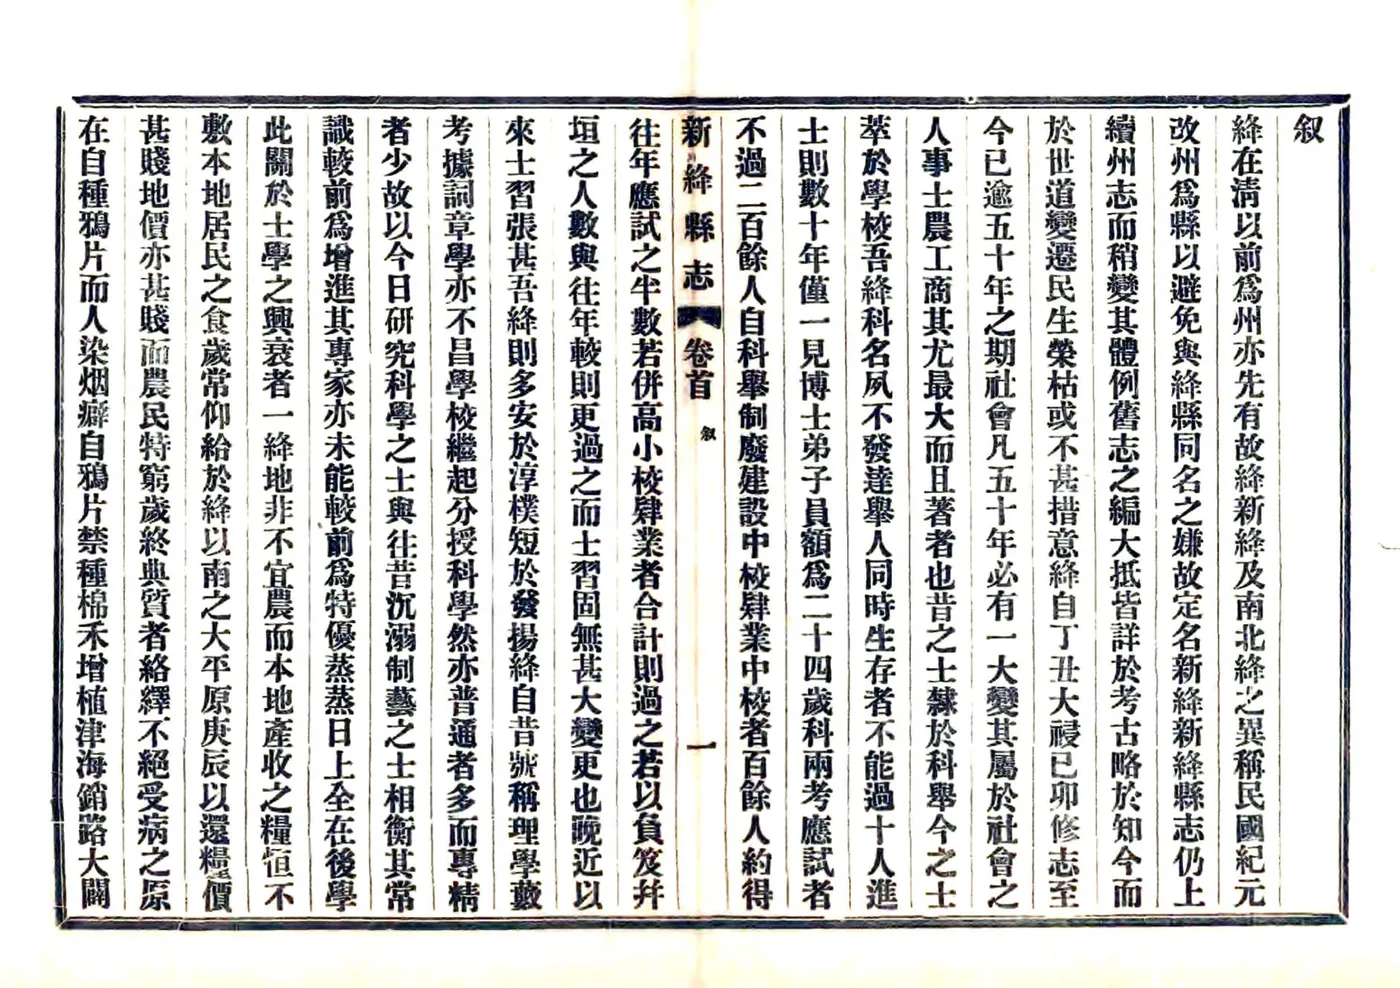 叙
絳在淸以前爲州亦先有故絳新絳及南北絳之異稱民國紀元
改州爲縣以避免與絳縣同名之嫌故定名新絳新絳縣志仍上
續州志而稍變其體例舊志之編大抵皆詳於考古略於知今而
於世道變遷民生榮枯或不甚措意絳自丁丑大祲已卯修志至
今已逾五十年之期社會凡五十年必有一大變其屬於社會之
人事士農工商其尤最大而且著者也昔之士隸於科舉今之士
萃於學校吾絳科名夙不發達舉人同時生存者不能過十人進
士則數十年僅一見博士弟子員額爲二十四歲科兩考應試者
不過二百餘人自科舉制廢建設中校肄業中校者百餘人約得
新絳縣志 卷首 叙 一
往年應試之半數若併高小校肄業者合計則過之若以負笈幷
垣之人數與往年較則更過之而士習固無甚大變更也晚近以
來士習張甚吾絳則多安於淳樸短於發揚絳自昔號稱理學藪
考據詞章學亦不昌學校繼起分授科學然亦普通者多而專精
者少故以今日研究科學之士與往昔沉溺制藝之士相衡其常
識較前爲增進其專家亦未能較前爲特優蒸蒸日上全在後學
此關於士學之興衰者一絳地非不宜農而本地產收之糧恒不
敷本地居民之食歲常仰給於絳以南之大平原庚辰以還糧價
甚賤地價亦甚賤而農民特窮歲終典質者絡繹不絕受病之原
在自種鴉片而人染烟癖自鴉片禁種棉禾增植津海銷路大闢